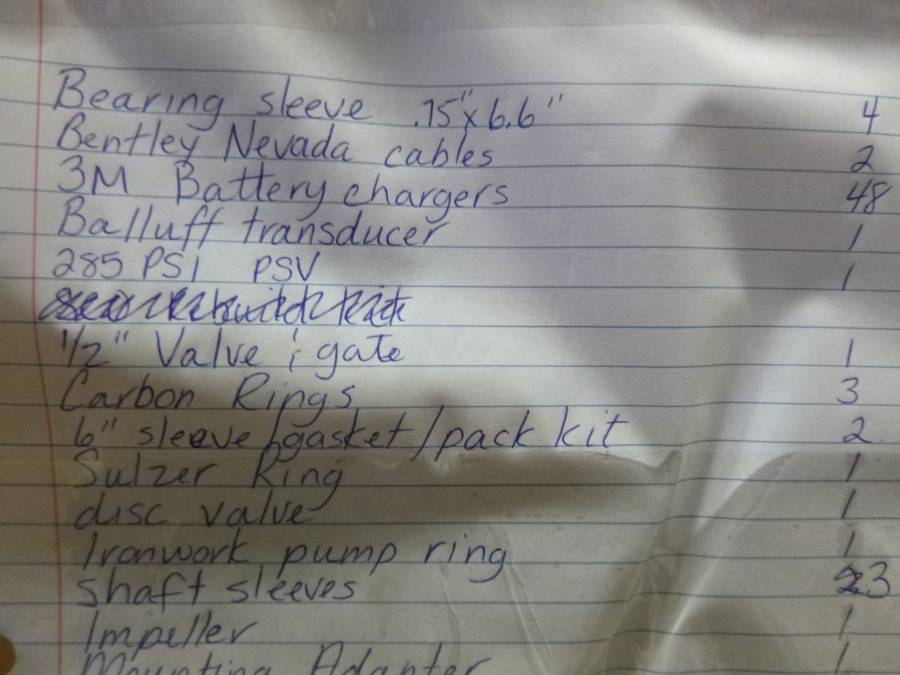 Bearing sleeve .75"x6.6" 4
Bentley Nevada cables 2
3M Battery chargers 48
Balluff transducer 1
285 PSI PSV 1
1/2" Valve ; gate 1
Carbon Rings 3
6" sleeve/gasket/pack kit 2
Sulzer Ring 1
disc valve 1
Ironwork pump ring 1
shaft sleeves 3
Impeller 1
Mounting Adapter 1